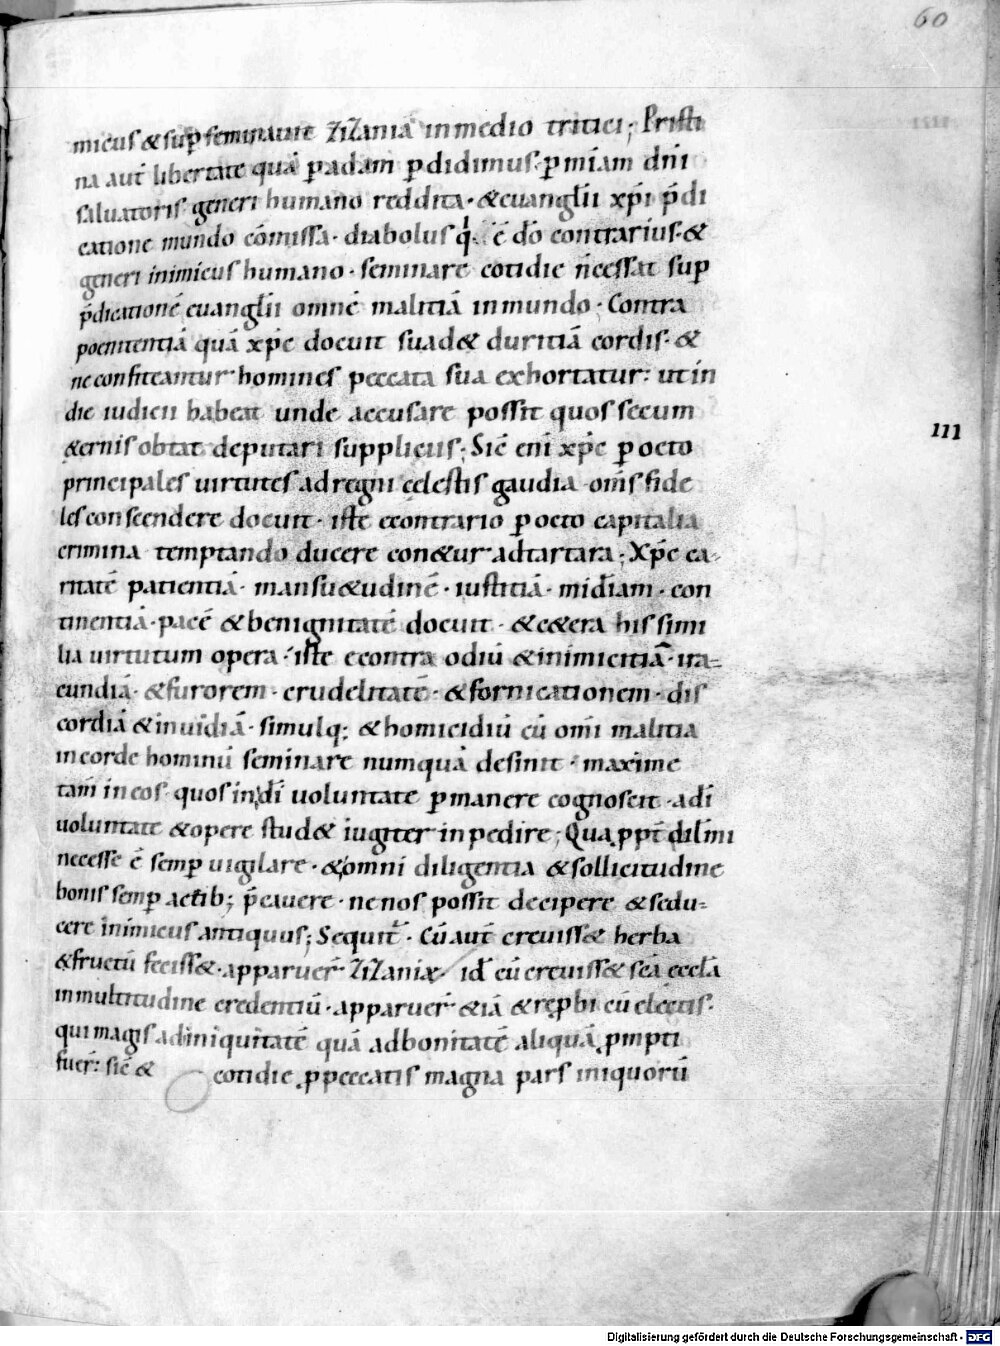 60
micus & sup̄ seminauit ZiZania in medio tritici; Pristi
na aut̄ libertate quā p̱ adam p̱didimus. p̱ miām dn̄i
saluatoris generi humano reddita. & euanglīi xp̄i p̄di
catione mundo cōmissa. diabolus q̇ ē dō contrarius. &
generi inimicus humano. seminare cotidie n̄ cessat sup̄
p̄dicationē euanglīi omnē malitiā in mundo. Contra
poenitentiā quā xp̄c docuit suad& duritiā cordis. &
ne confiteantur homines peccata sua exhortatur: ut in
die iudicii habeat unde accusare possit quos secum
&ernis obtat deputari suppliciis; Sic̄ eni xp̄c p̱ octo
principales uirtutes ad regni cęlestis gaudia om̄s fide
les conscendere docuit. iste econtrario p̱ octo capitalia
crimina temptando ducere con&ur ad tartara; Xp̄c ca-
ritatē patientiā. mansu&udinē. iustitiā. mīdiam. con
tinentiā. pacē & benignitatē docuit. & c&era his simi
lia uirtutum opera. iste econtra odiū & inimicitiā. ira=
cundiā. & furorem. crudelitatē. & fornicationem. dis
cordiā & inuidiā. simulq; & homicidiū cū om̄i malitia
in corde hominū seminare numquā desinit. maxime
tam̄ in eos quos in dī uoluntate p̱manere cognoscit. a dī
uoluntate & opere stud& iugiter inpedire; Qua ꝓpt̄ dil̄mi
necesse ē semp̄ uigilare. & omni diligentia & sollicitudine
bonis semp̄ actib; p̄cauere. ne nos possit decipere & sedu=
cere inimicus antiquus; Sequit̄. Cū aut̄ creuiss& herba
& fructū feciss&. apparuer̄ ZiZaniæ. id̄ cū creuiss& scā eccłā
in multitudine credentiū. apparuer̄ &iā & rep̱bi cū electis.
qui magis ad iniquitatē quā ad bonitatē aliquā ꝓmpti
fuer̄: sic̄ & cotidie ꝓ peccatis magna pars iniquorū
III
Digitalisierung gefördert durch die Deutsche Forschungsgemeinschaft - DFG